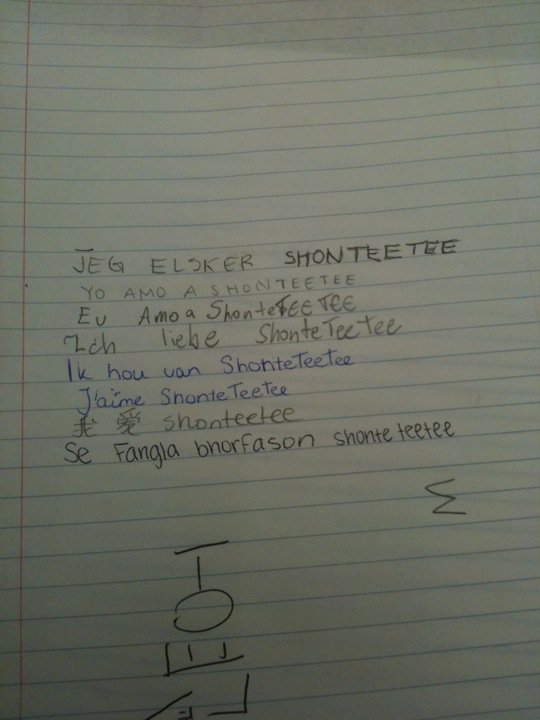 JEG ELSKER SHONTEETEE
YO AMO A SHONTEETEE
Eu Amo a ShonteTEETEE
Ich liebe ShonteTeeTee
Ik hou van ShonteTeeTee
J'aime ShonteTeeTee
我 爱 shonteetee
Se Fangla bhorfason shonteteetee